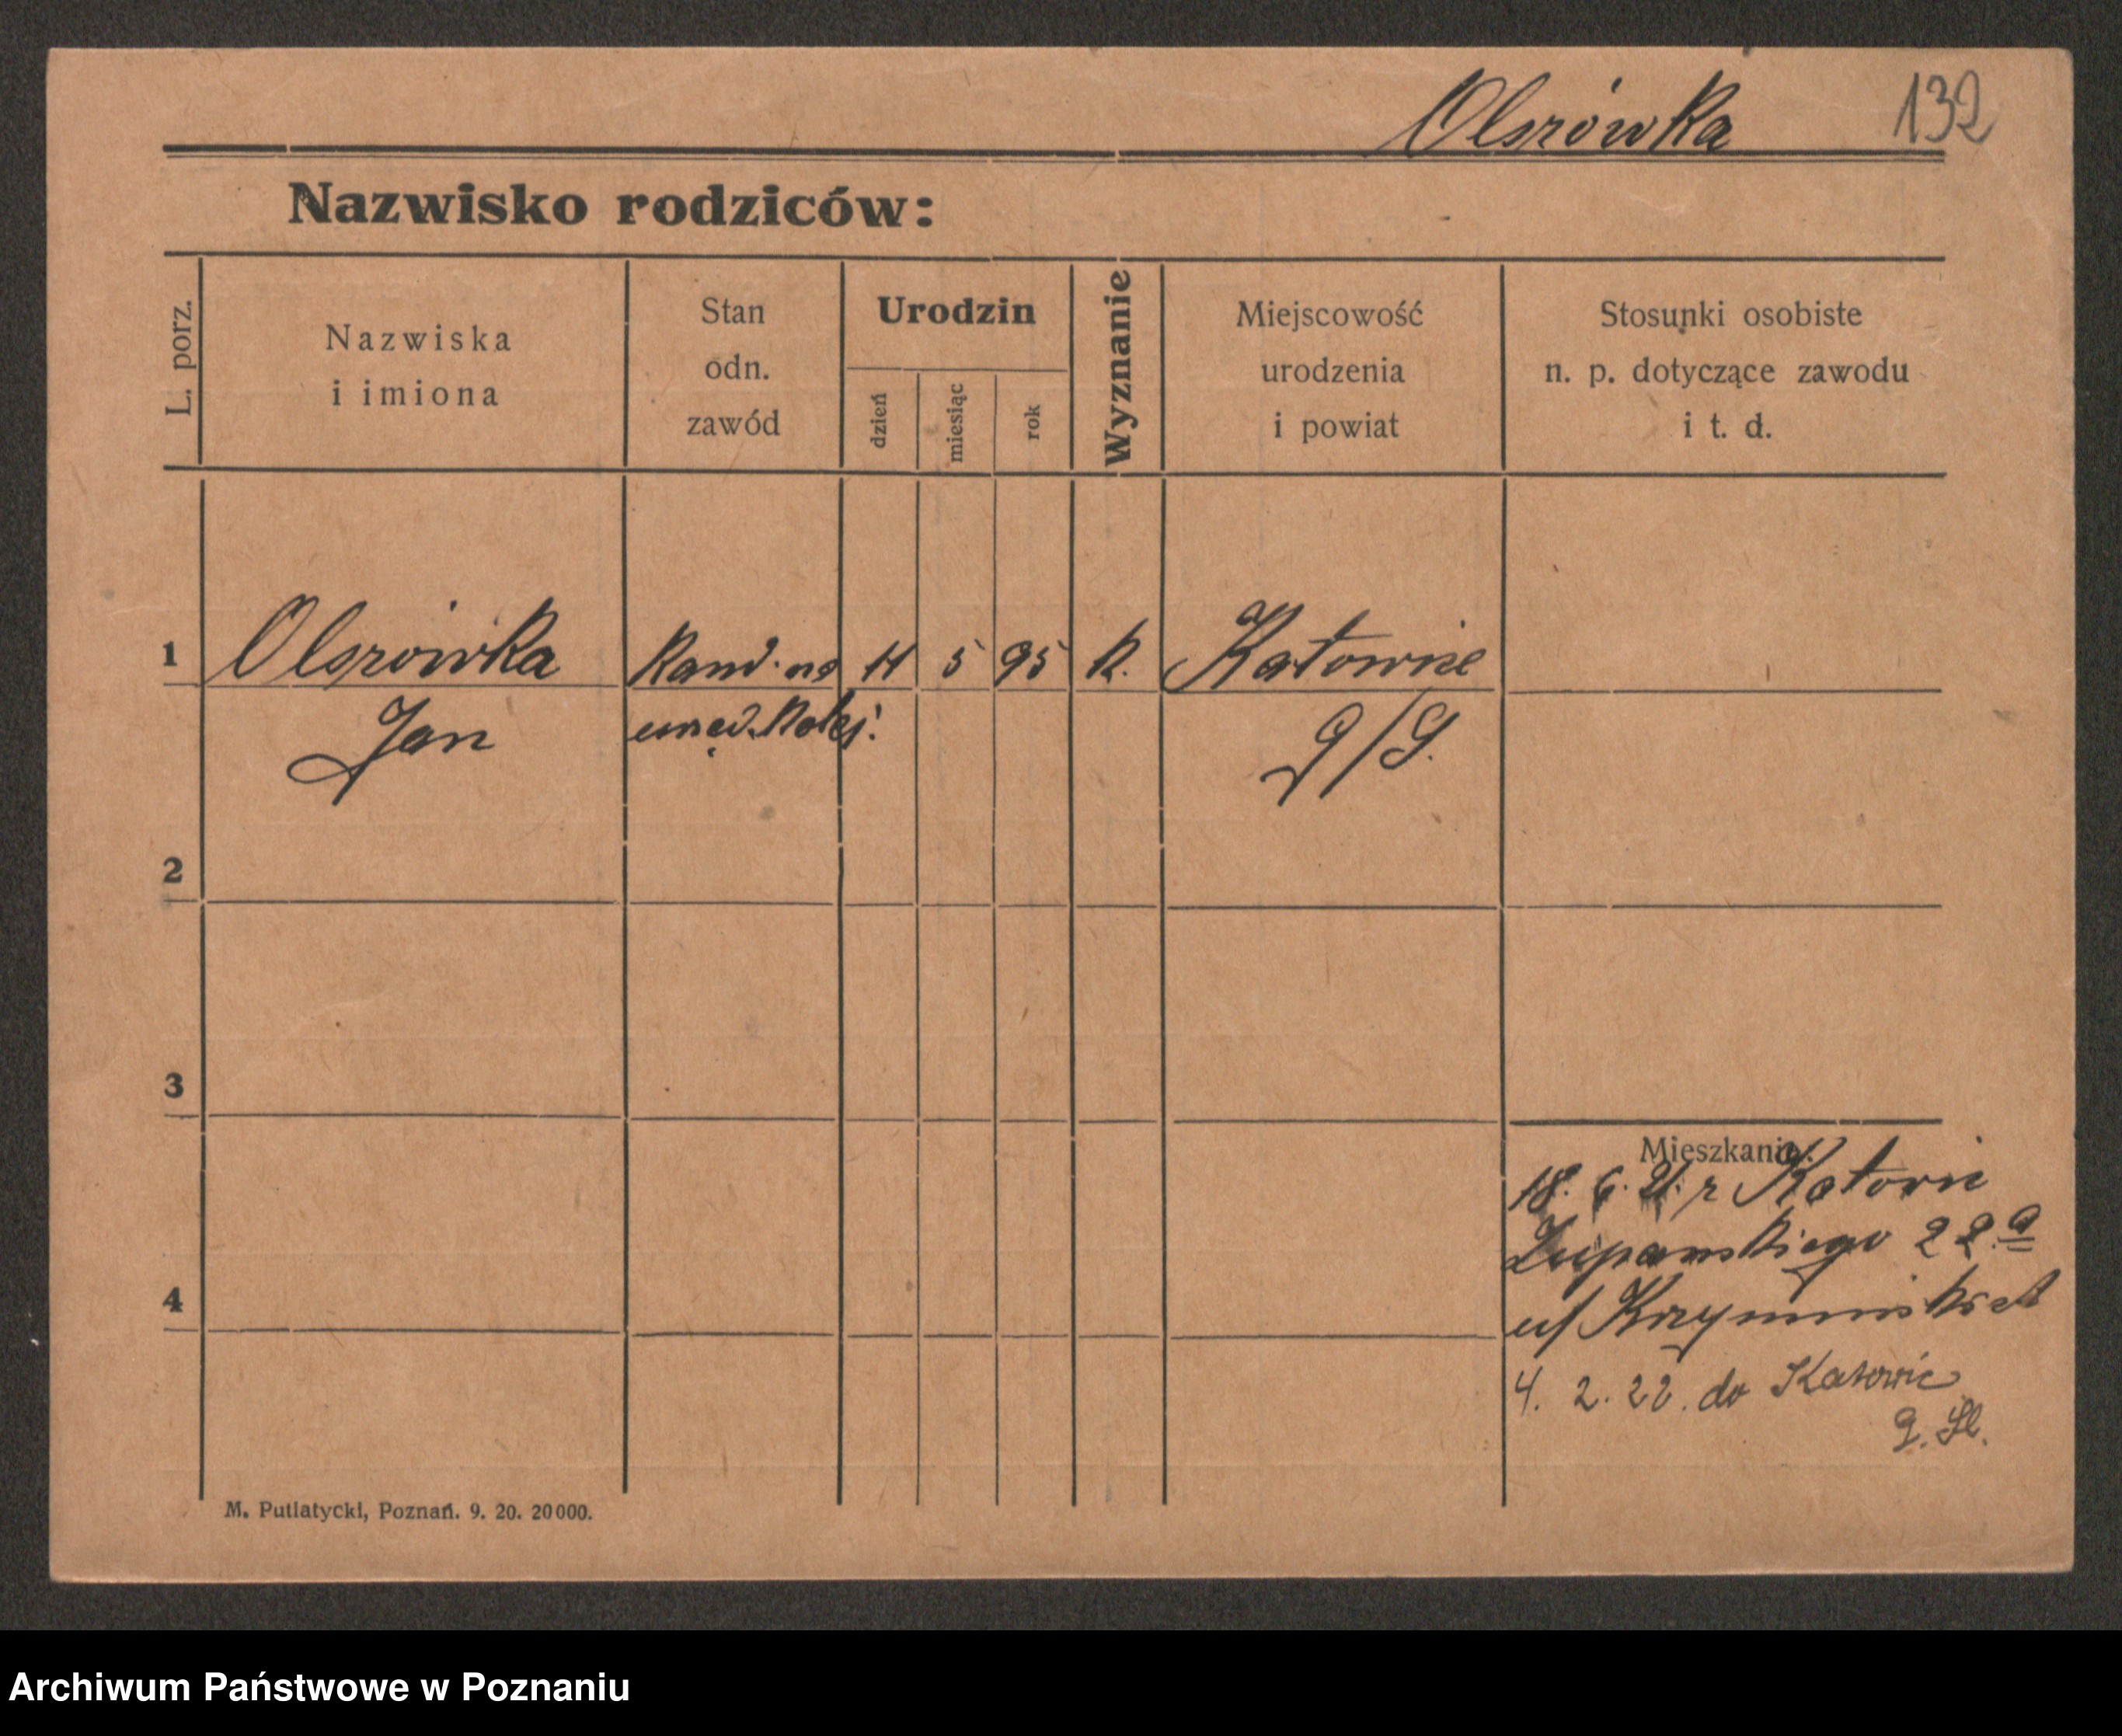 Olszówka 132
Nazwisko rodziców:
L. porz.
Nazwiska
i imiona
Stan
odn.
zawód
Urodzin
dzień
miesiąc
rok
Wyznanie
Miejscowość
urodzenia
i powiat
Stosunki osobiste
n. p. dotyczące zawodu
i t. d.
1 Olszówka Kand. na 11 5 95 k. Katowice
Jan urzęd. kolej. G/S.
2
3
Mieszkanie:
18. 6. 21. z Katowic
Żupańskiego 22.a
4
u/
4. 2. 22. do Katowic
G. Śl.
M. Putiatycki, Poznań. 9. 20. 20000.
Archiwum Państwowe w Poznaniu